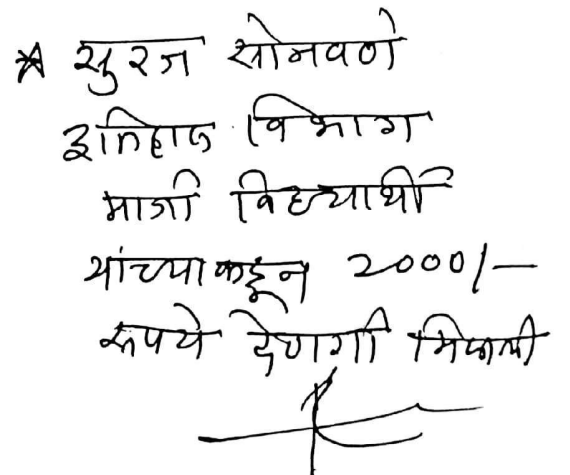 * सुरज सोनवणे
इतिहास विभाग
माजी विद्यार्थी
यांच्याकडून 2000/-
रुपये देणगी मिळाली